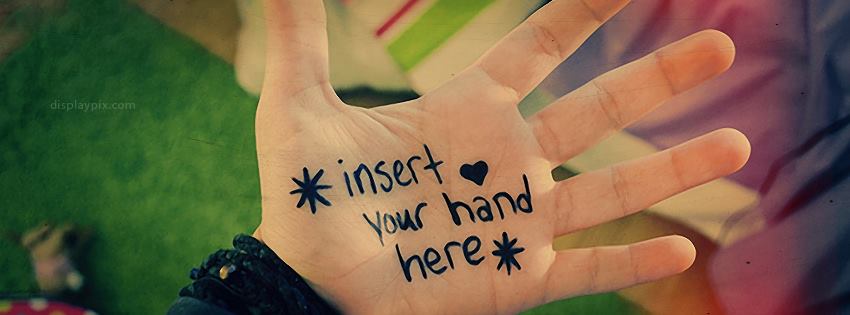 displaypix.com
*insert ♥
your hand
here*